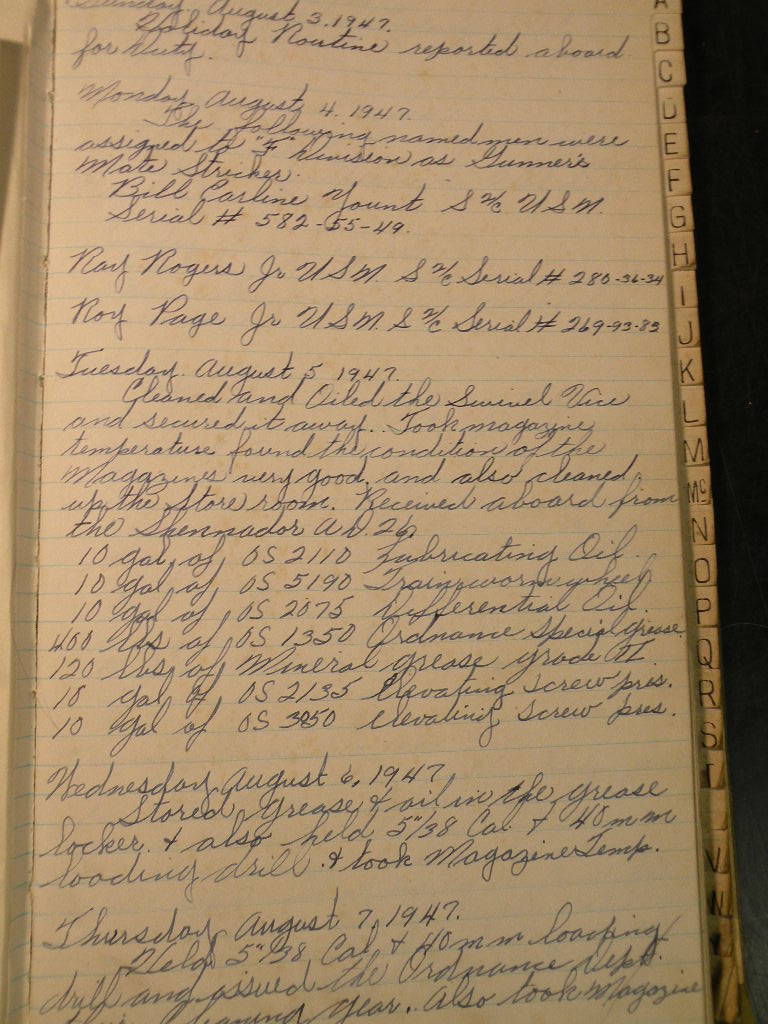 Sunday, August 3, 1947.
Holiday Routine reported aboard
for duty.
Monday August 4, 1947.
The following named men were
assigned to "F" Division as Gunner's
Mate Striker.
Bill Carline Yount S 2/c USN.
Serial # 582-55-49.
Ray Rogers Jr USN. S 2/c Serial # 280-36-34
Roy Page Jr USN. S 2/c Serial # 269-93-83
Tuesday. August 5 1947.
Cleaned and Oiled the Swivel Vice
and secured it away. Took magazine
temperature found the condition of the
Magazines very good, and also cleaned
up the Store room. Received aboard from
the Shennador A.D. 26
10 gal of OS 2110 Lubricating Oil.
10 gal of OS 5190 Train worm wheel
10 gal of OS 2075 Differential Oil.
400 lbs of OS 1350 Ordnance special grease.
120 lbs of Mineral grease grade II
10 gal of OS 2135 Elevating Screw pres.
10 gal of OS 3050 elevating Screw pres.
Wednesday August 6, 1947
Stored grease & oil in the grease
locker. & also held 5"/38 Cal. & 40 mm
loading drill. & took Magazine Temp.
Thursday August 7, 1947.
Held 5"/38 Cal & 40 mm loading
drill and issued the Ordnance Dept.
cleaning gear. Also took Magazine
A
B
C
D
E
F
G
H
I
J
K
L
M
Mc
N
O
P
Q
R
S
T
V
W